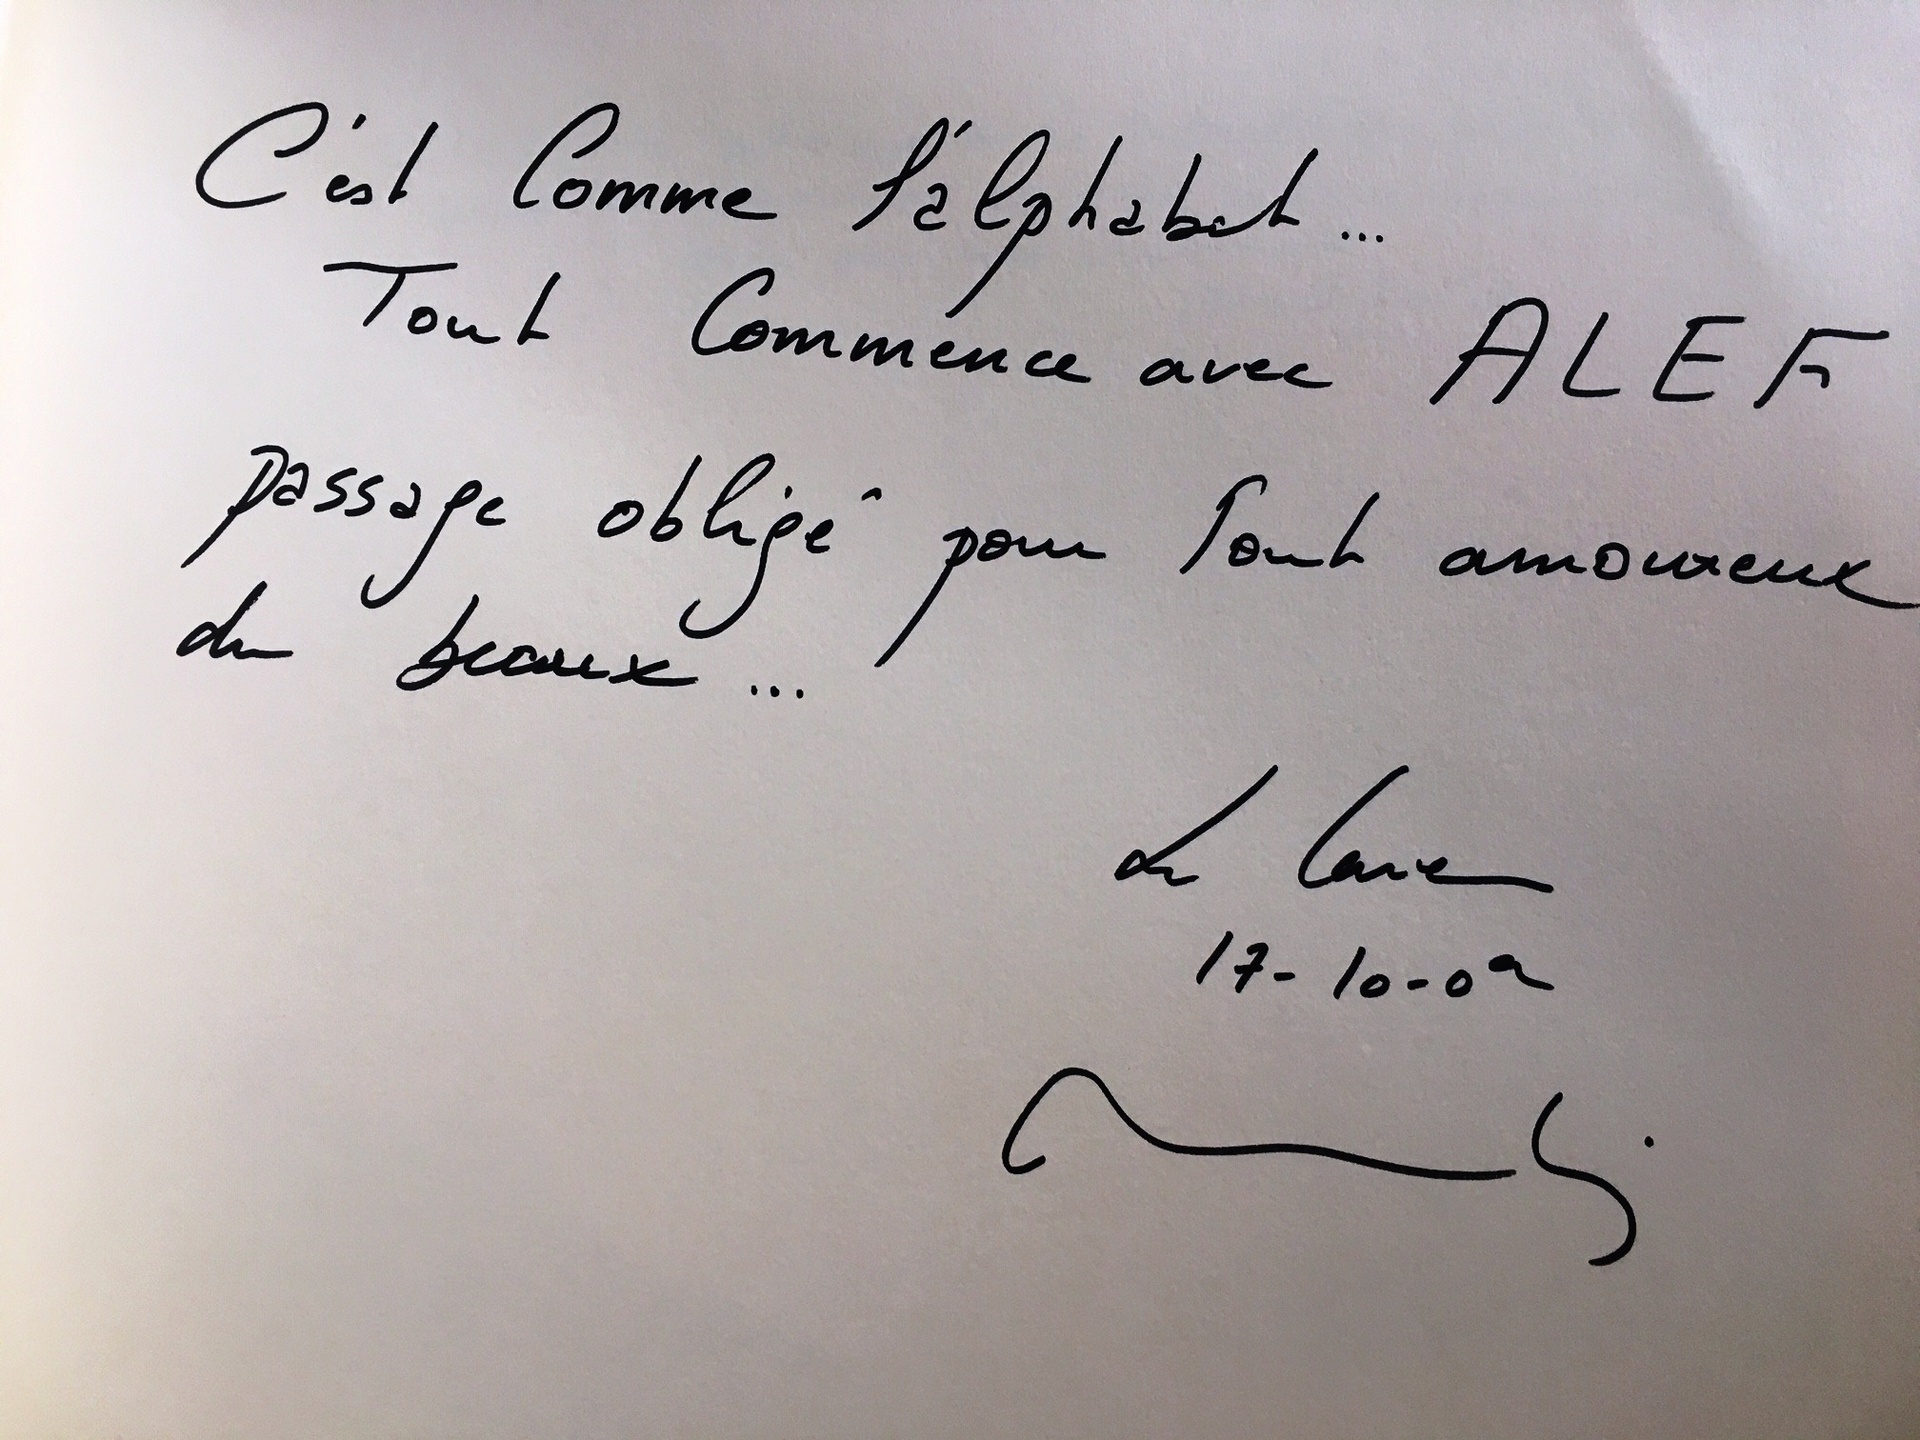 C'est Comme l'alphabet...
Tout Commence avec ALEF
passage obligé pour Tout amoureux
du beaux...
Le Caire
17-10-09